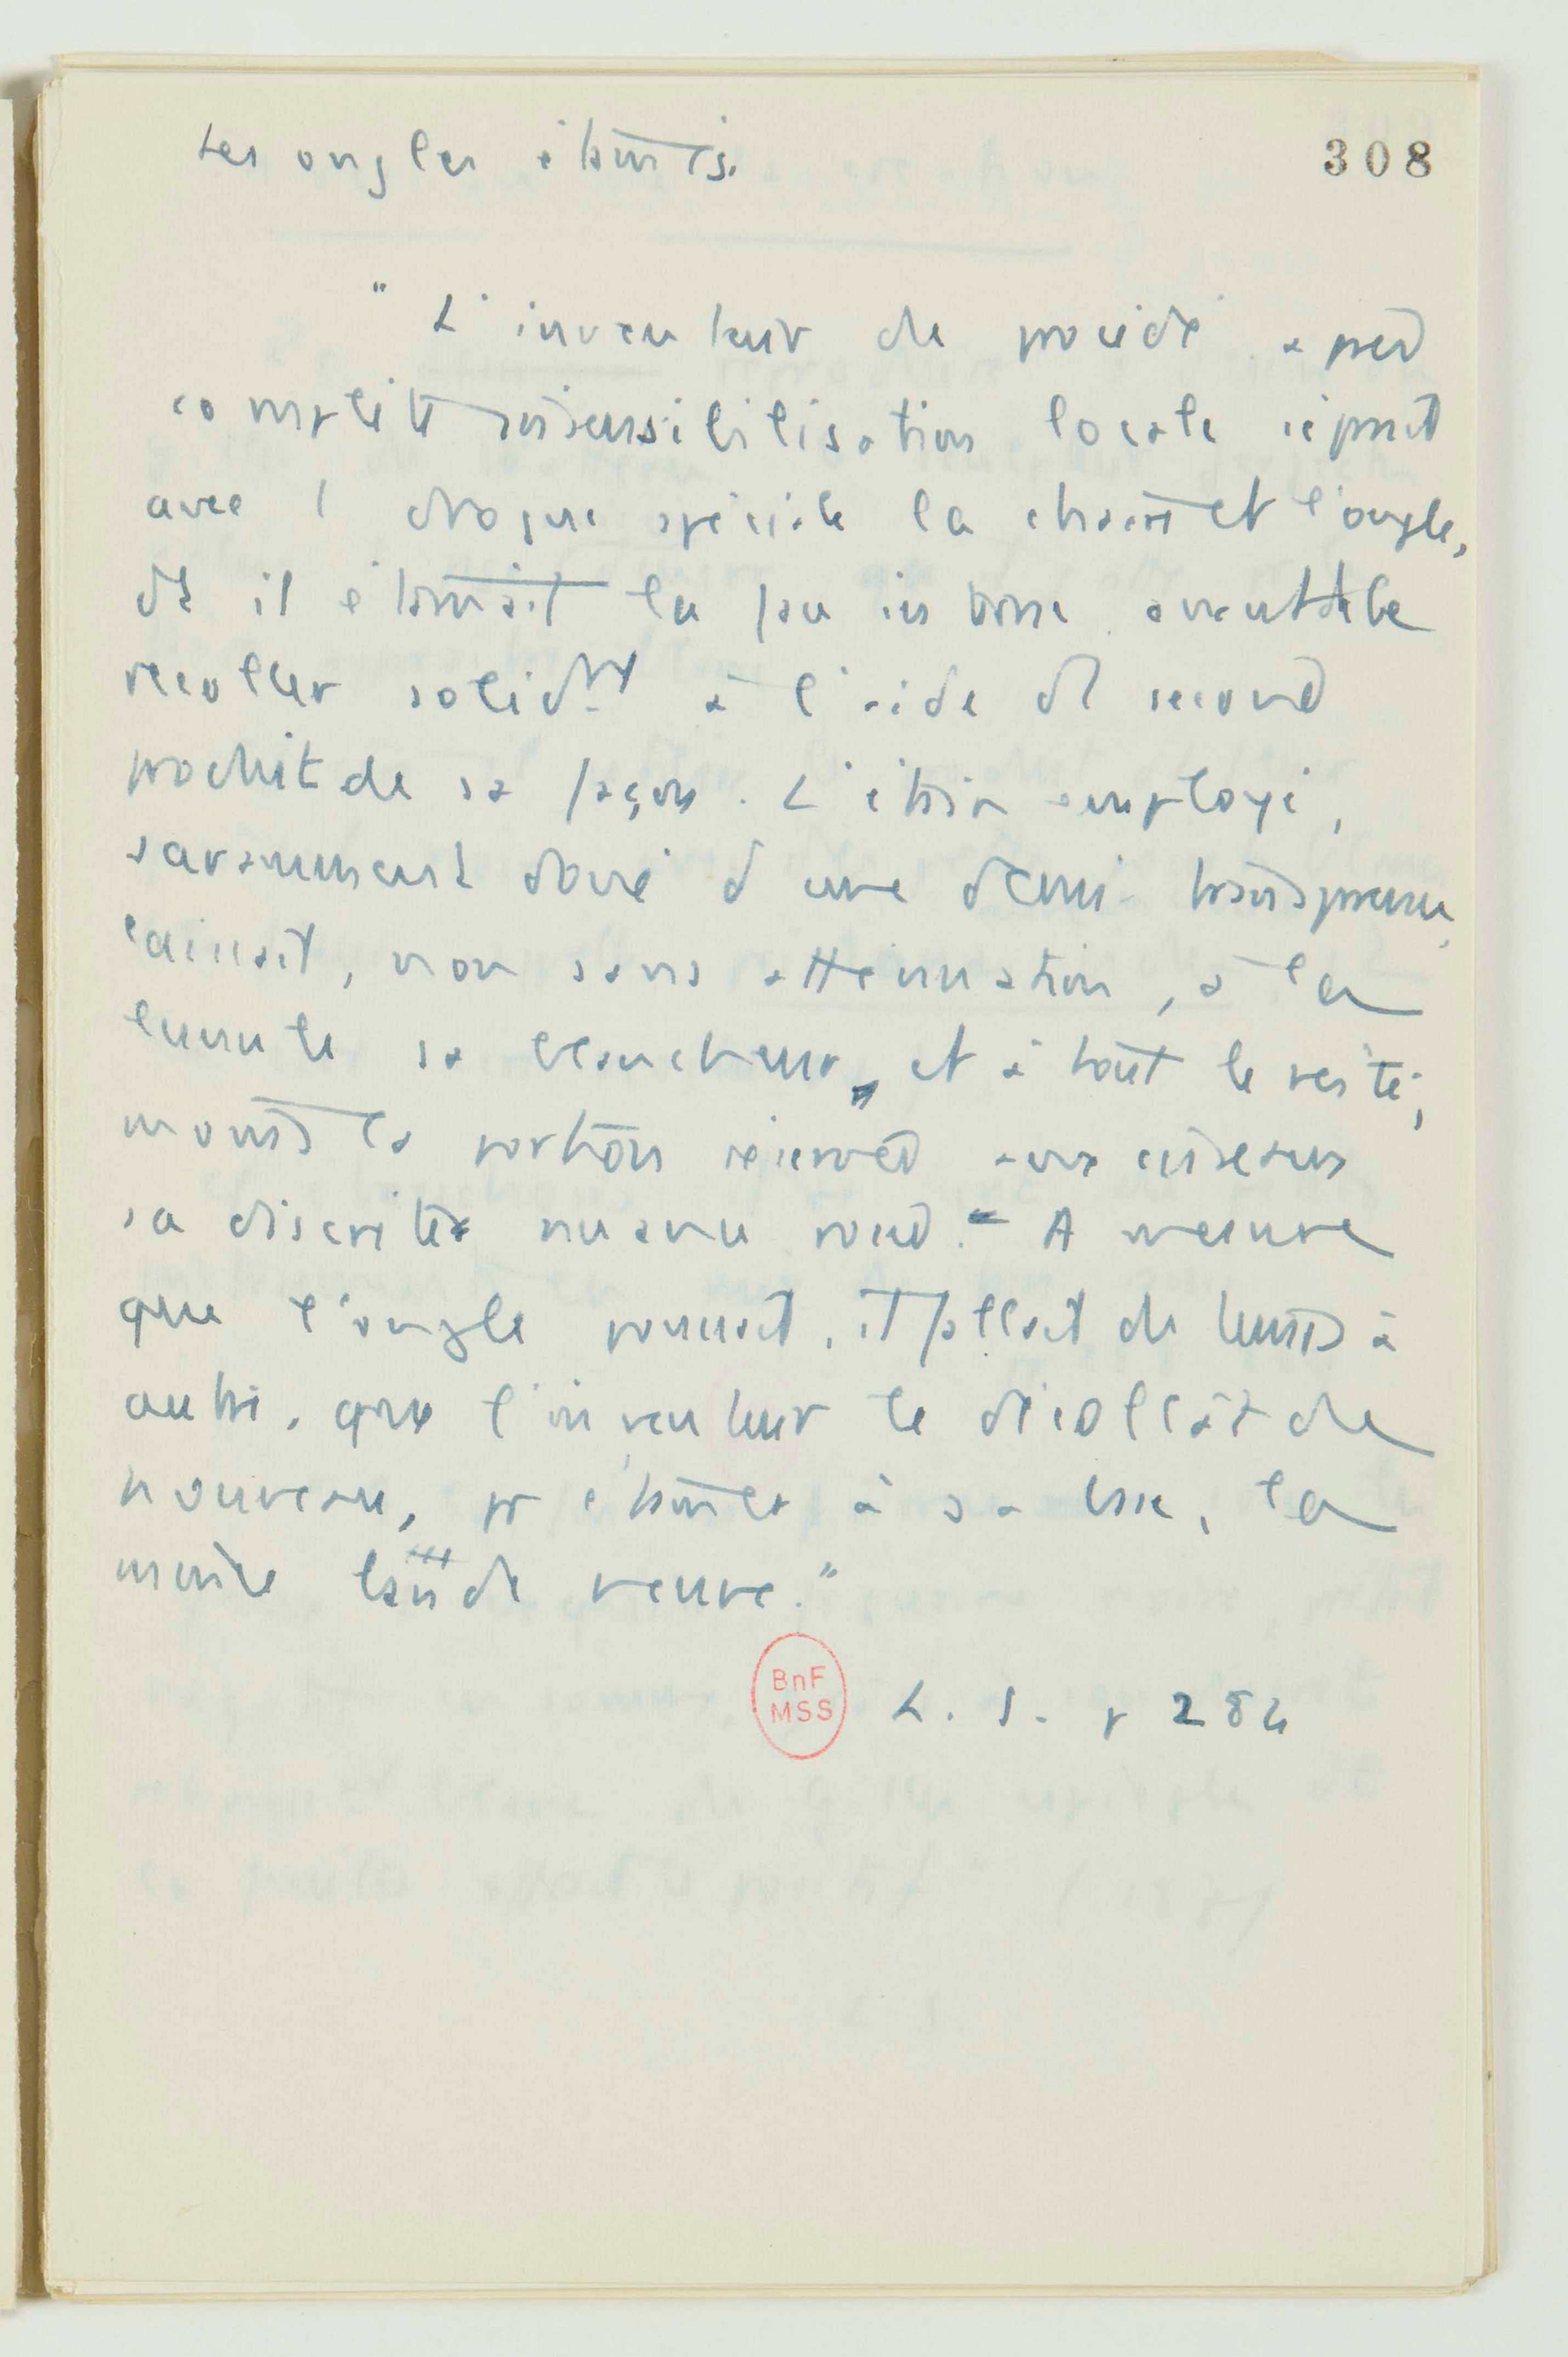 Les ongles étamés.
308
" L'inventeur du procédé, après
complète insensibilisation locale séparait
avec 1 drogue spéciale la chair et l'ongle,
dt il étamait la face interne avant de le
recoller solidmt à l'aide d'1 second
produit de sa façon. L'étain employé,
savamment doué d'une demi-transparence,
laissait, non sans atténuation, à la
lunule sa blancheur, et à tout le reste,
moins la portion réservée aux ciseaux
sa discrète nuance rosée. - A mesure
que l'ongle poussait, il fallait de temps à
autre, que l'inventeur le décollât de
nouveau, pr étamer à sa base, la
mince bande neuve."
BnF
MSS
L. S. p 284